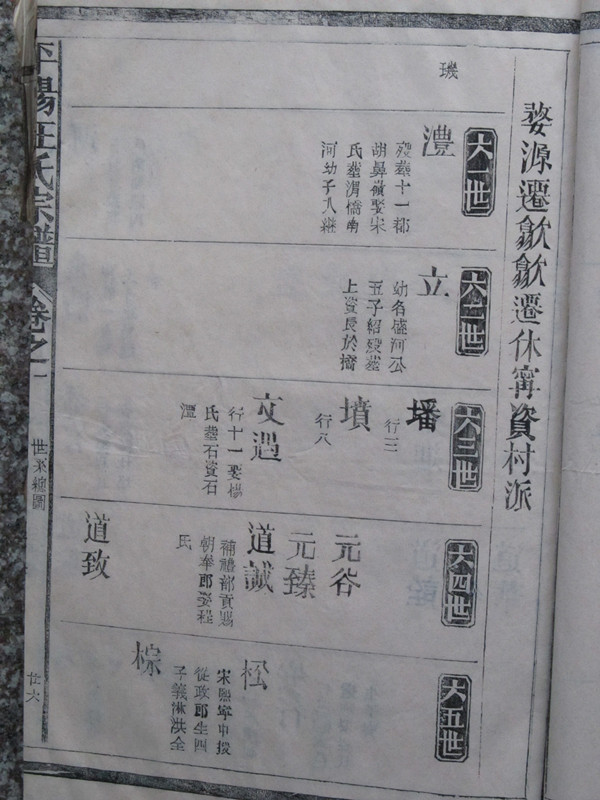 婺源遷歙歙遷休寗資村派
璣
六一世
澧
歿葬十一都
胡鼻嶺娶宋
氏葬渭橋南
河幼子入繼
六二世
立
幼名盛河公
五子紹歿葬
上資長於橋
六三世
墦
行三
墳
行八
文遇
行十一娶楊
氏葬石資石
六四世
元谷
元臻
道誠
補禮部貢賜
朝奉郎娶程
氏
道致
六五世
松
宋熙寧中授
從政郎生四
子義 洪全
棕
平陽汪氏宗譜
卷之一
世系總圖
廿六